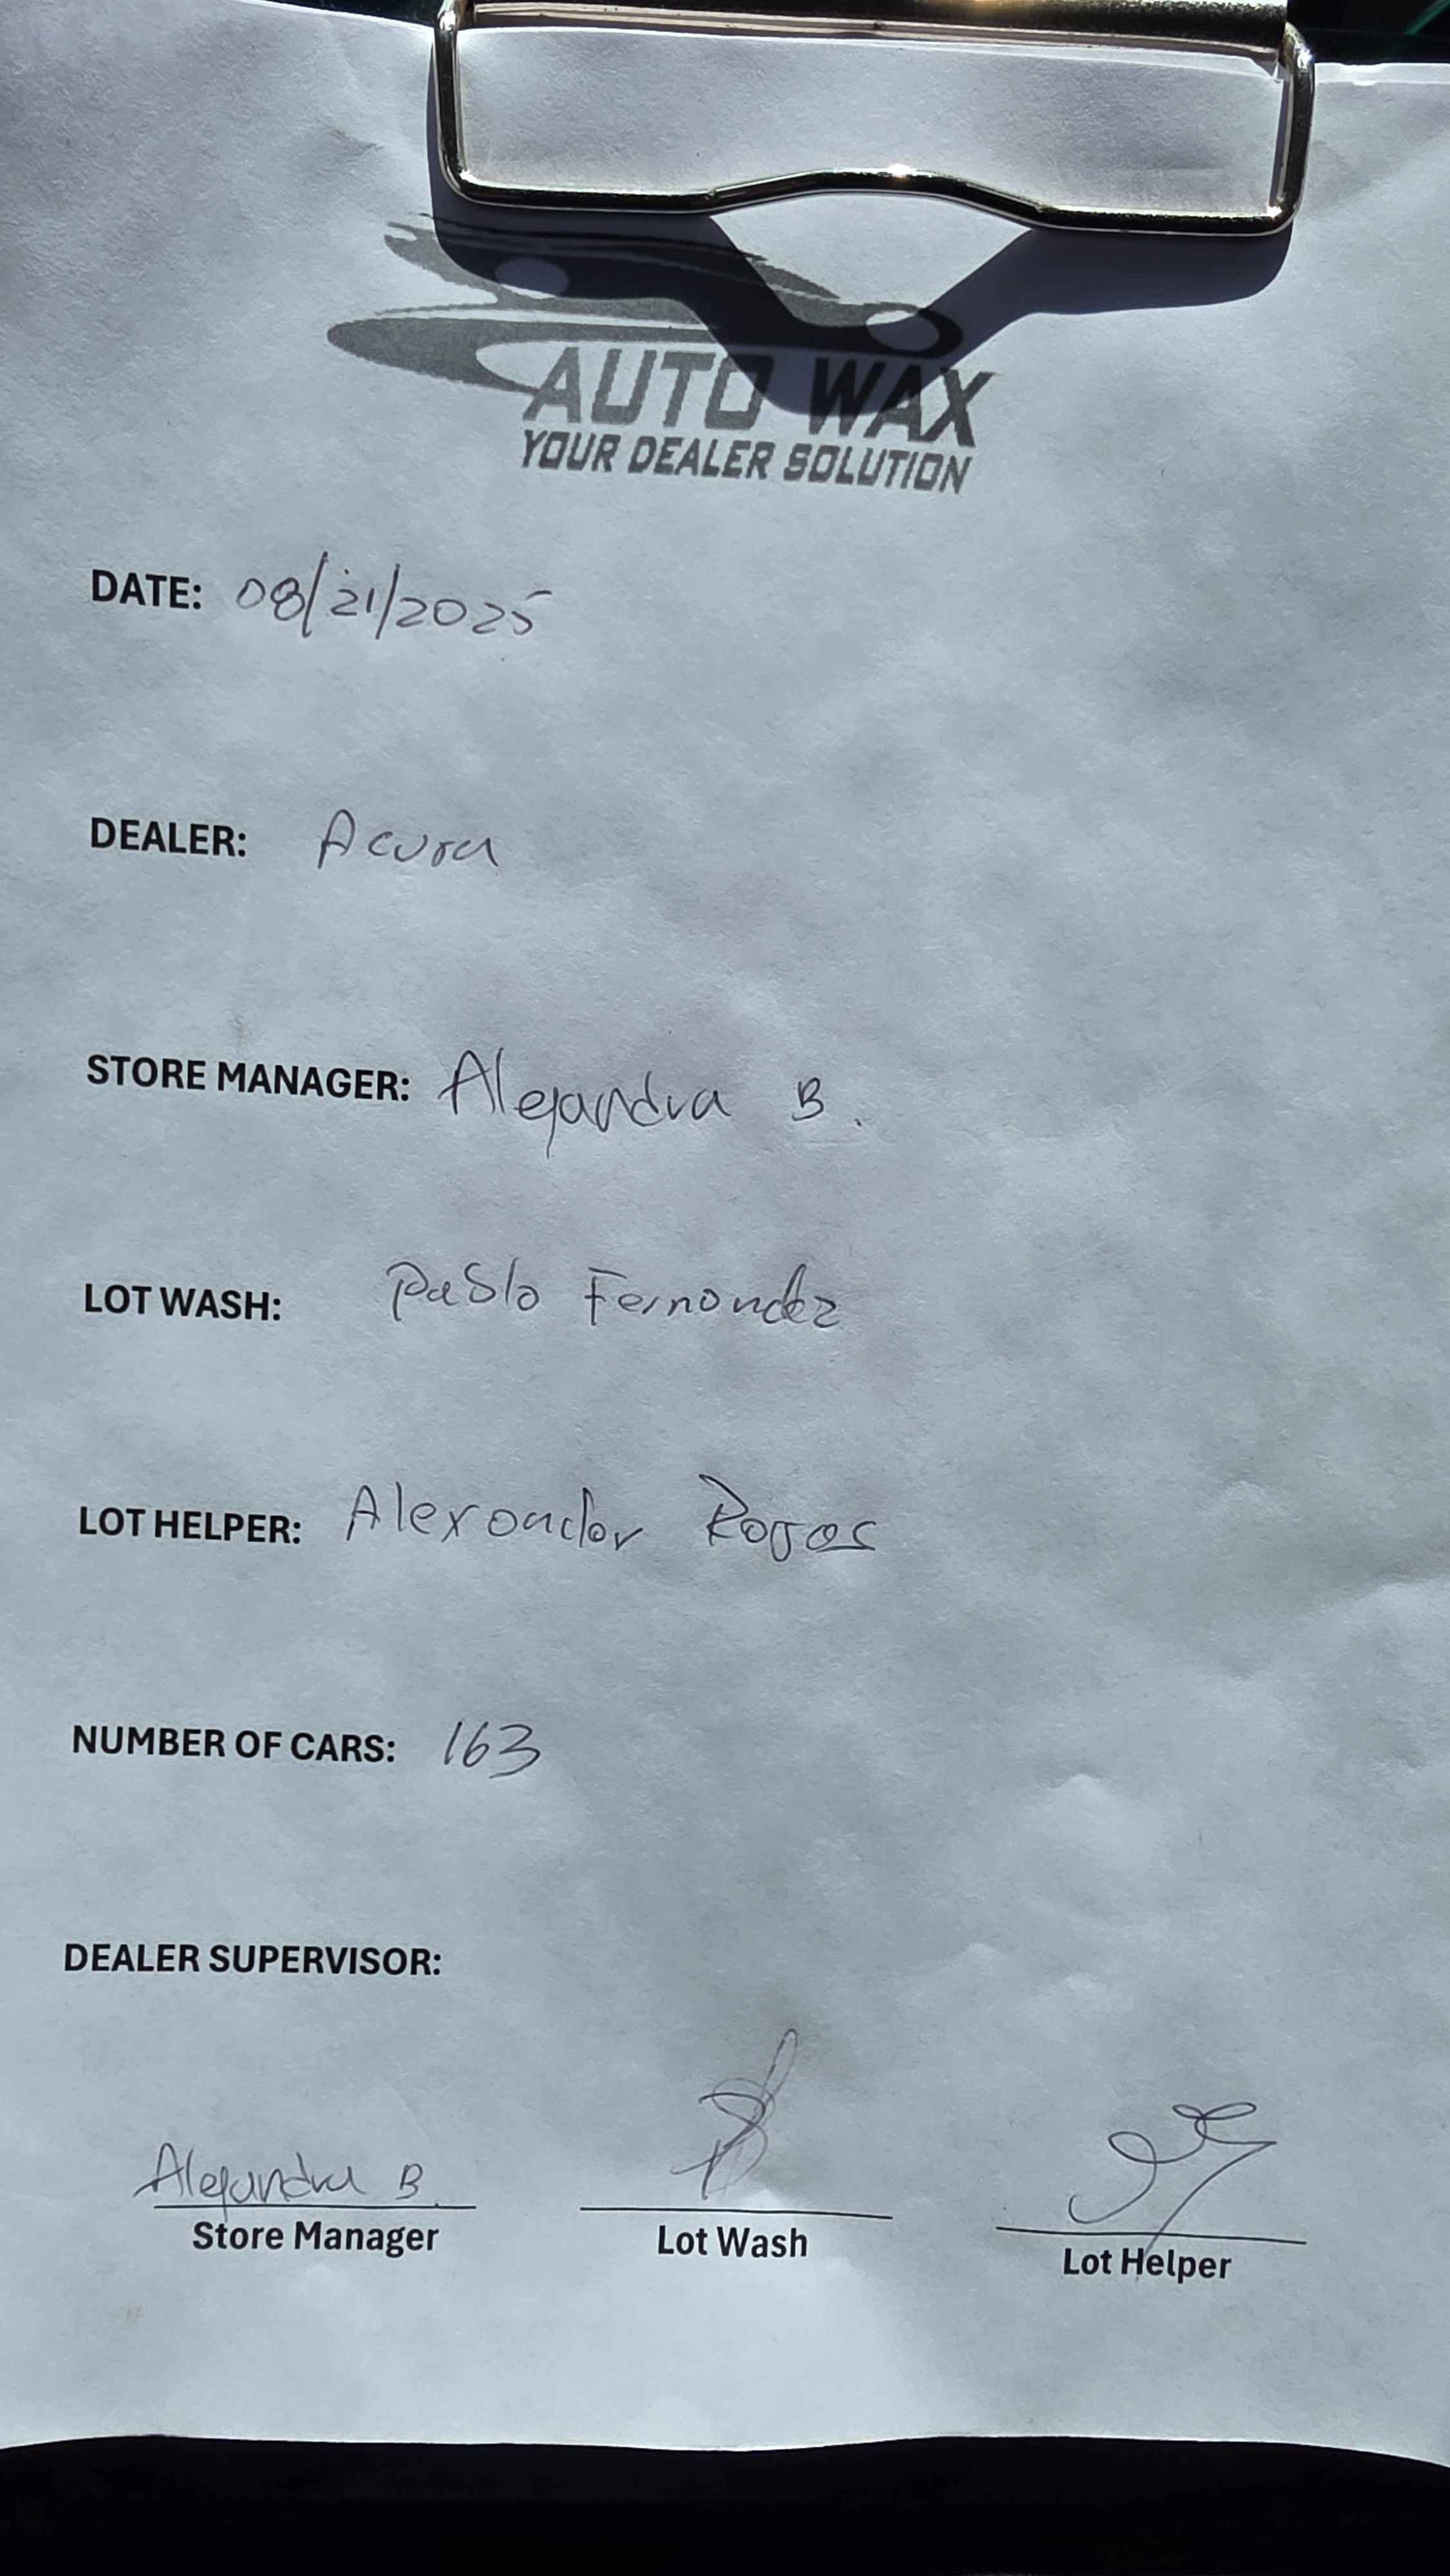 AUTO WAX
YOUR DEALER SOLUTION
DATE: 08/21/2025
DEALER: Acura
STORE MANAGER: Alejandra B.
LOT WASH: Pablo Fernandez
LOT HELPER: Alexander Rojas
NUMBER OF CARS: 163
DEALER SUPERVISOR:
Alejandra B.
Store Manager
Lot Wash
Lot Helper